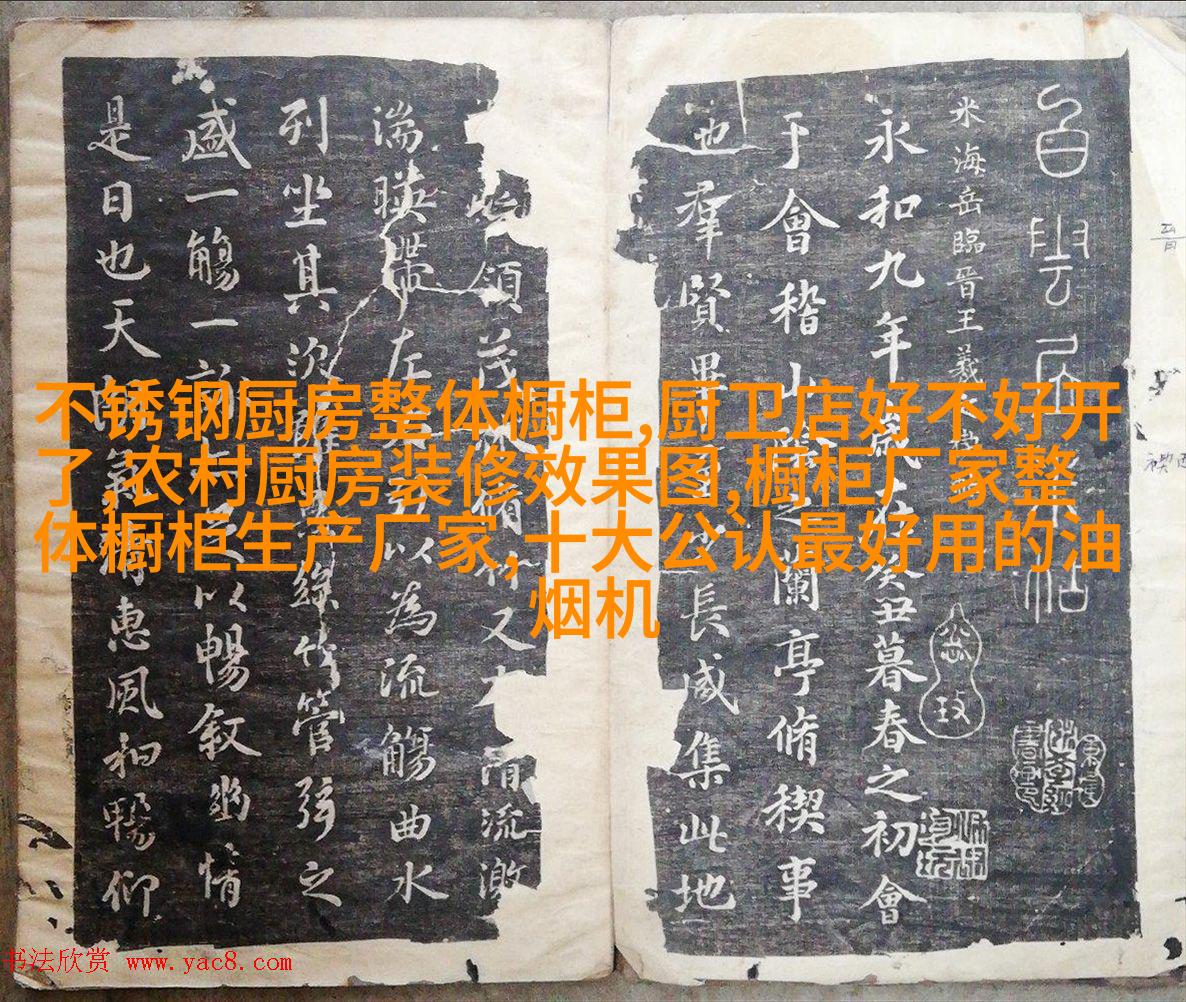 不锈钢厨房整体橱柜,厨卫店好不好开
了,农村厨房装修效果图,橱柜厂家整
体橱柜生产厂家,十大公认最好用的油
烟机
白雲居米帖
米海岳臨晉王羲
永和九年歲在癸丑暮春之初會
于會稽山陰之蘭亭脩稧事
也羣賢畢至少長咸集此地
領茂林脩竹又有清流激
湍暎帶左右引以為流觴曲水
列坐其次雖無絲竹管弦之
盛一觴一詠亦足以暢敘幽情
是日也天朗氣清惠風和暢仰
书法欣赏 www.yac8.com